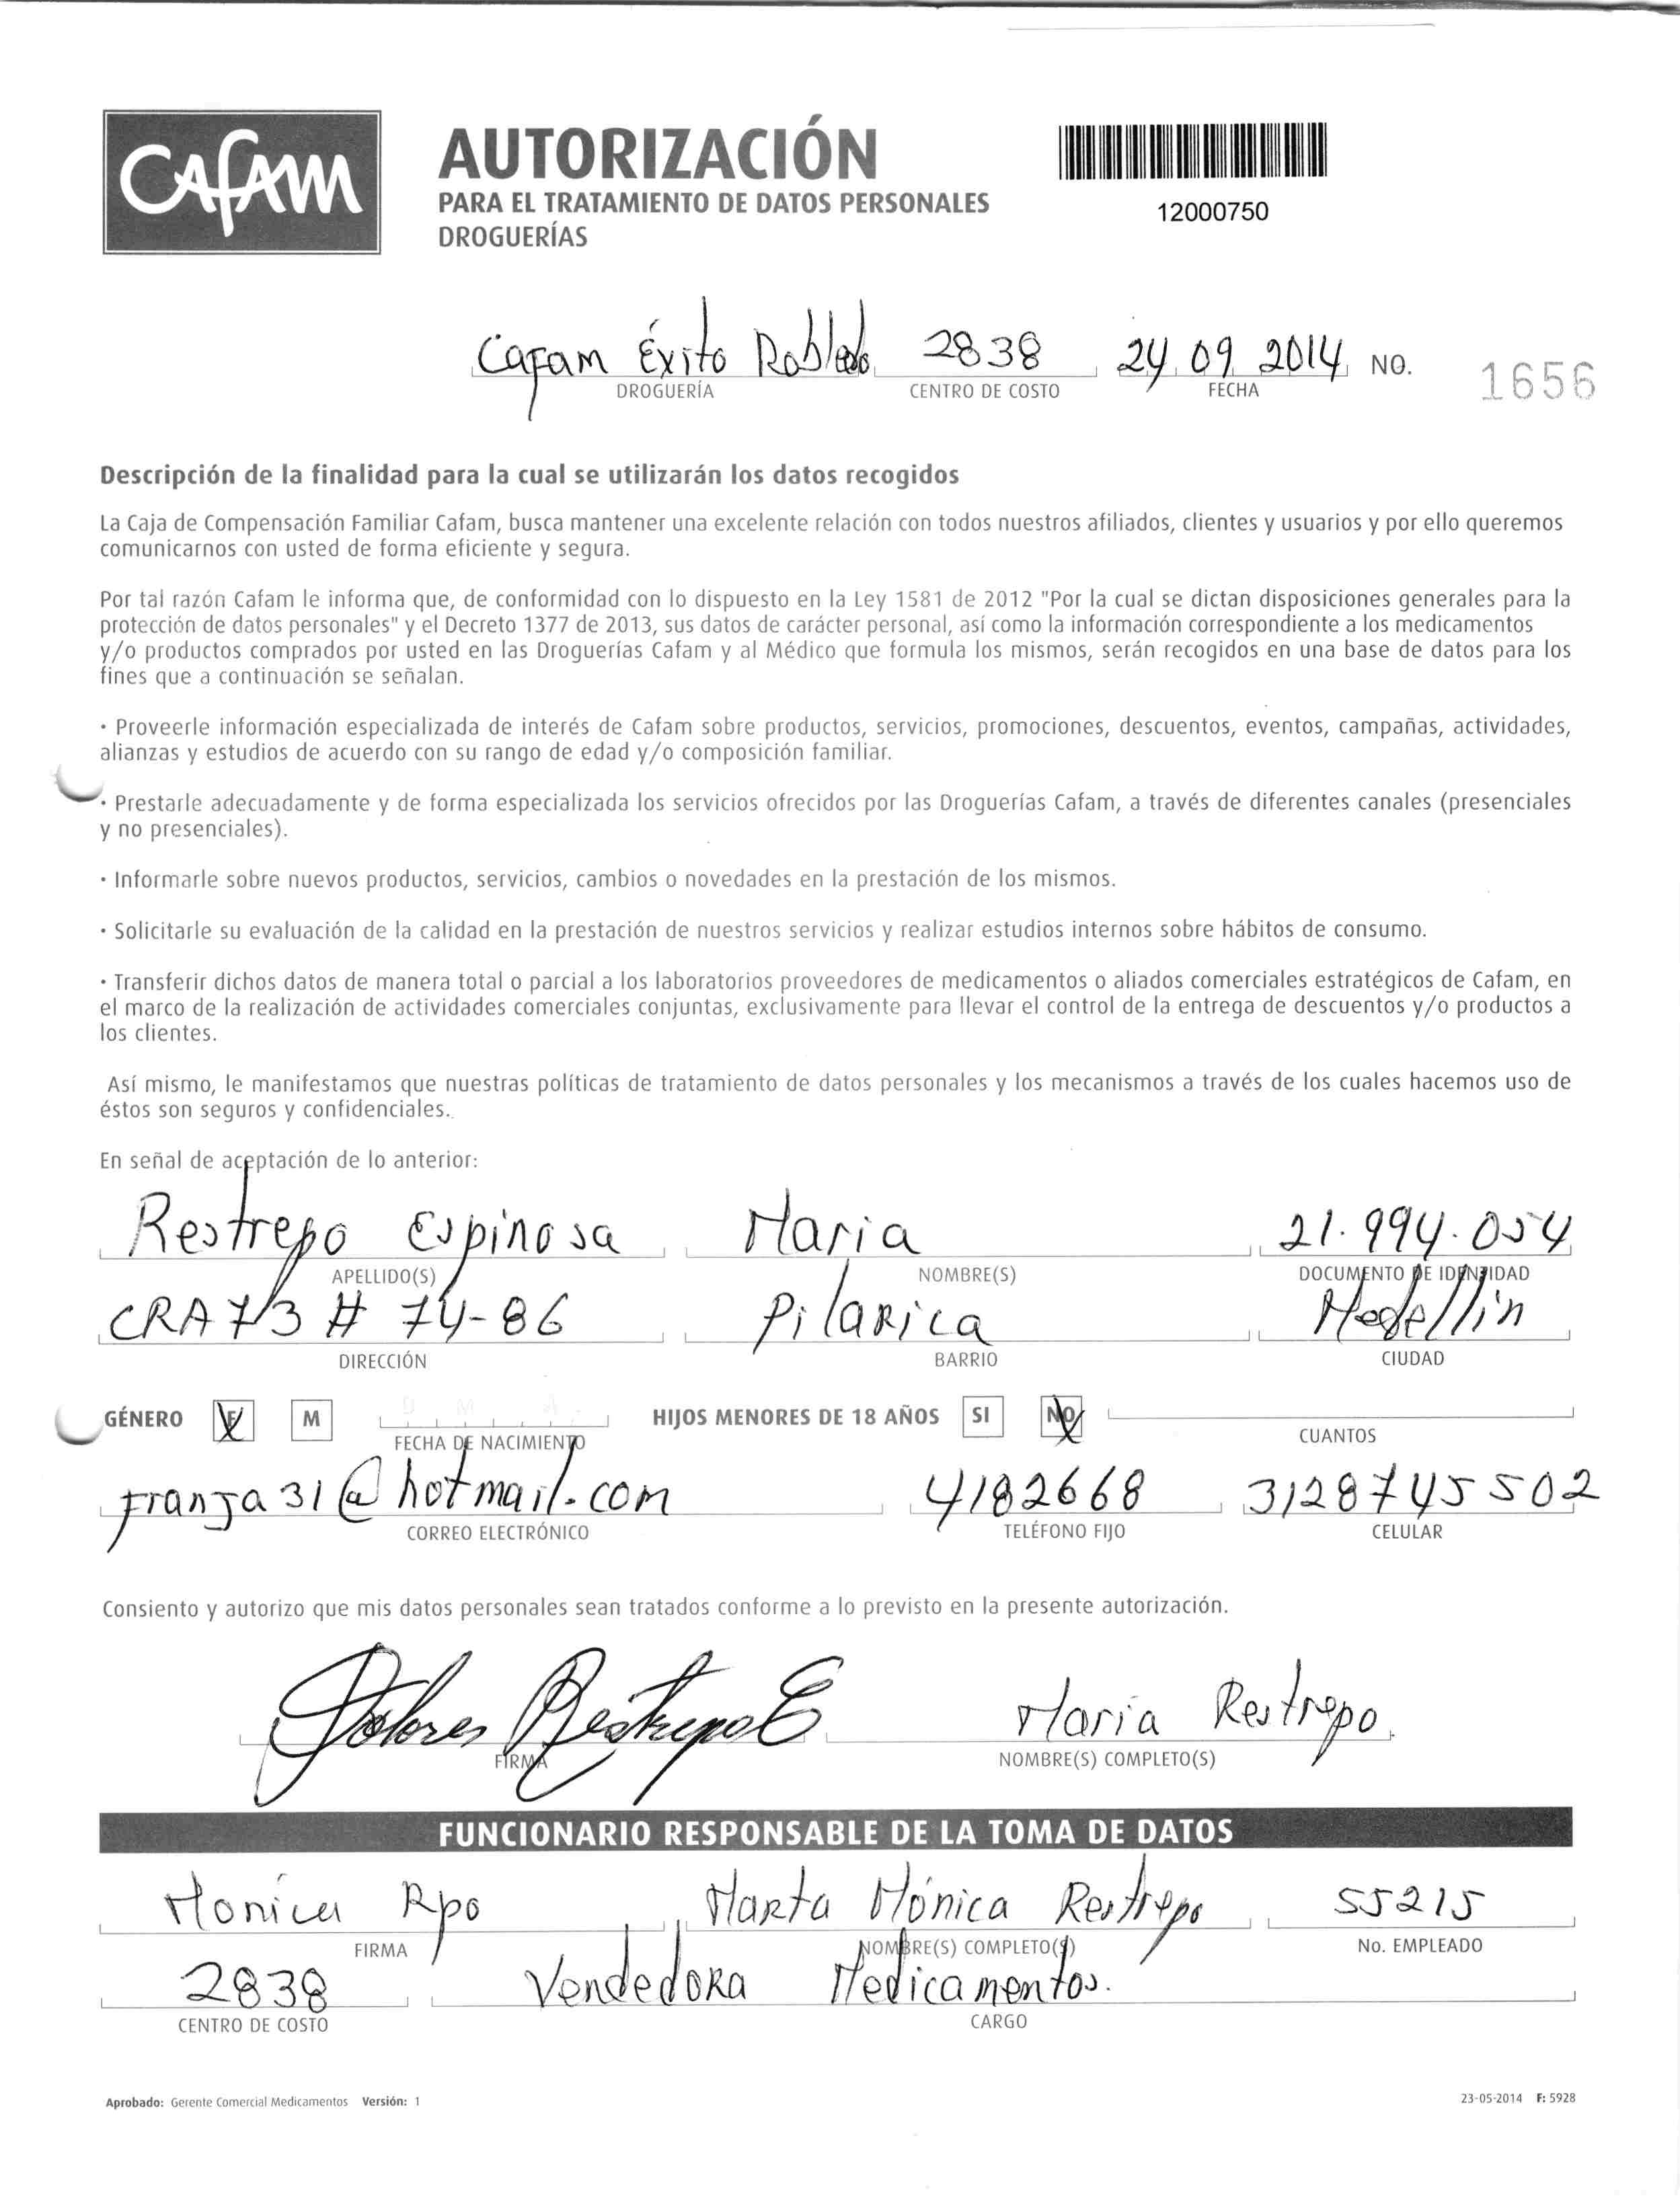 CAFAM
AUTORIZACIÓN
PARA EL TRATAMIENTO DE DATOS PERSONALES
DROGUERÍAS
12000750
Cafam Éxito Robledo 2838 24 09 2014 NO. 1656
DROGUERÍA CENTRO DE COSTO FECHA
Descripción de la finalidad para la cual se utilizarán los datos recogidos
La Caja de Compensación Familiar Cafam, busca mantener una excelente relación con todos nuestros afiliados, clientes y usuarios y por ello queremos
comunicarnos con usted de forma eficiente y segura.
Por tal razón Cafam le informa que, de conformidad con lo dispuesto en la Ley 1581 de 2012 "Por la cual se dictan disposiciones generales para la
protección de datos personales" y el Decreto 1377 de 2013, sus datos de carácter personal, así como la información correspondiente a los medicamentos
y/o productos comprados por usted en las Droguerías Cafam y al Médico que formula los mismos, serán recogidos en una base de datos para los
fines que a continuación se señalan.
· Proveerle información especializada de interés de Cafam sobre productos, servicios, promociones, descuentos, eventos, campañas, actividades,
alianzas y estudios de acuerdo con su rango de edad y/o composición familiar.
· Prestarle adecuadamente y de forma especializada los servicios ofrecidos por las Droguerías Cafam, a través de diferentes canales (presenciales
y no presenciales).
· Informarle sobre nuevos productos, servicios, cambios o novedades en la prestación de los mismos.
· Solicitarle su evaluación de la calidad en la prestación de nuestros servicios y realizar estudios internos sobre hábitos de consumo.
· Transferir dichos datos de manera total o parcial a los laboratorios proveedores de medicamentos o aliados comerciales estratégicos de Cafam, en
el marco de la realización de actividades comerciales conjuntas, exclusivamente para llevar el control de la entrega de descuentos y/o productos a
los clientes.
Así mismo, le manifestamos que nuestras políticas de tratamiento de datos personales y los mecanismos a través de los cuales hacemos uso de
éstos son seguros y confidenciales..
En señal de aceptación de lo anterior:
Restrepo Espinosa Maria 21.994.054
APELLIDO(S) NOMBRE(S) DOCUMENTO DE IDENTIDAD
CRA 73 # 74-86 Pilarica Medellin
DIRECCIÓN BARRIO CIUDAD
GÉNERO F M D M A HIJOS MENORES DE 18 AÑOS SI NO
FECHA DE NACIMIENTO CUANTOS
franja31@hotmail.com 4182668 3128745502
CORREO ELECTRÓNICO TELÉFONO FIJO CELULAR
Consiento y autorizo que mis datos personales sean tratados conforme a lo previsto en la presente autorización.
Dolores Restrepo E Maria Restrepo.
FIRMA NOMBRE(S) COMPLETO(S)
FUNCIONARIO RESPONSABLE DE LA TOMA DE DATOS
Monica Rpo Marta Mónica Restrepo 55215
FIRMA NOMBRE(S) COMPLETO(S) No. EMPLEADO
2838 Vendedora Medicamentos.
CENTRO DE COSTO CARGO
Aprobado: Gerente Comercial Medicamentos Versión: 1 23-05-2014 F: 5928